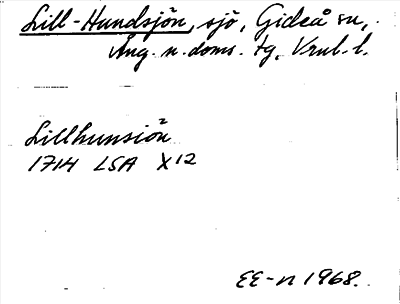 Lill-Hundsjön, sjö, Gideå sn,
Ång. n. doms. tg, Vrnl. l.
Lillhunsiön
1714 LSA X12
EE-n 1968.